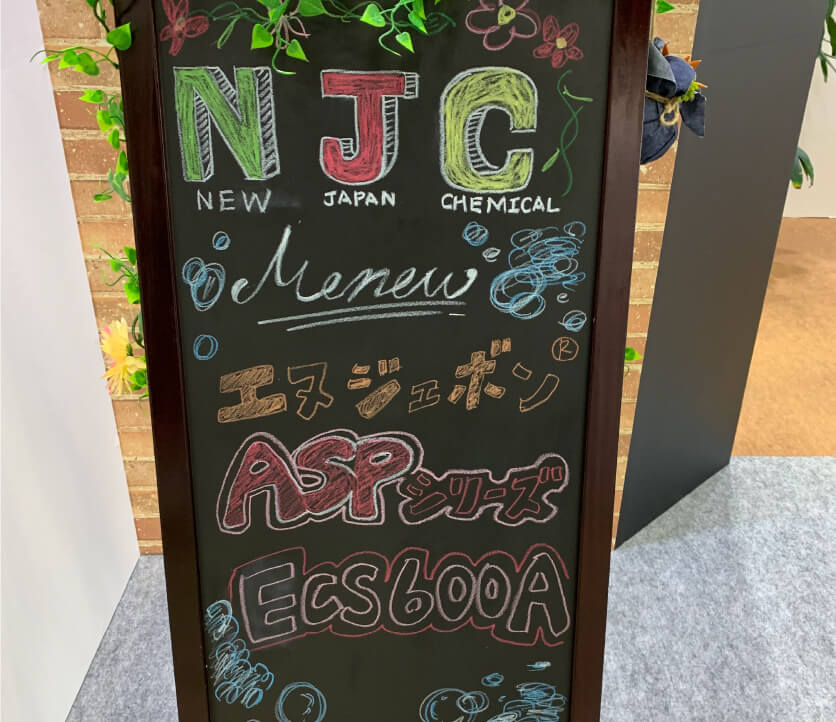 NJC
NEW JAPAN CHEMICAL
Menew
エヌジェボン®
ASPシリーズ
ECS600A